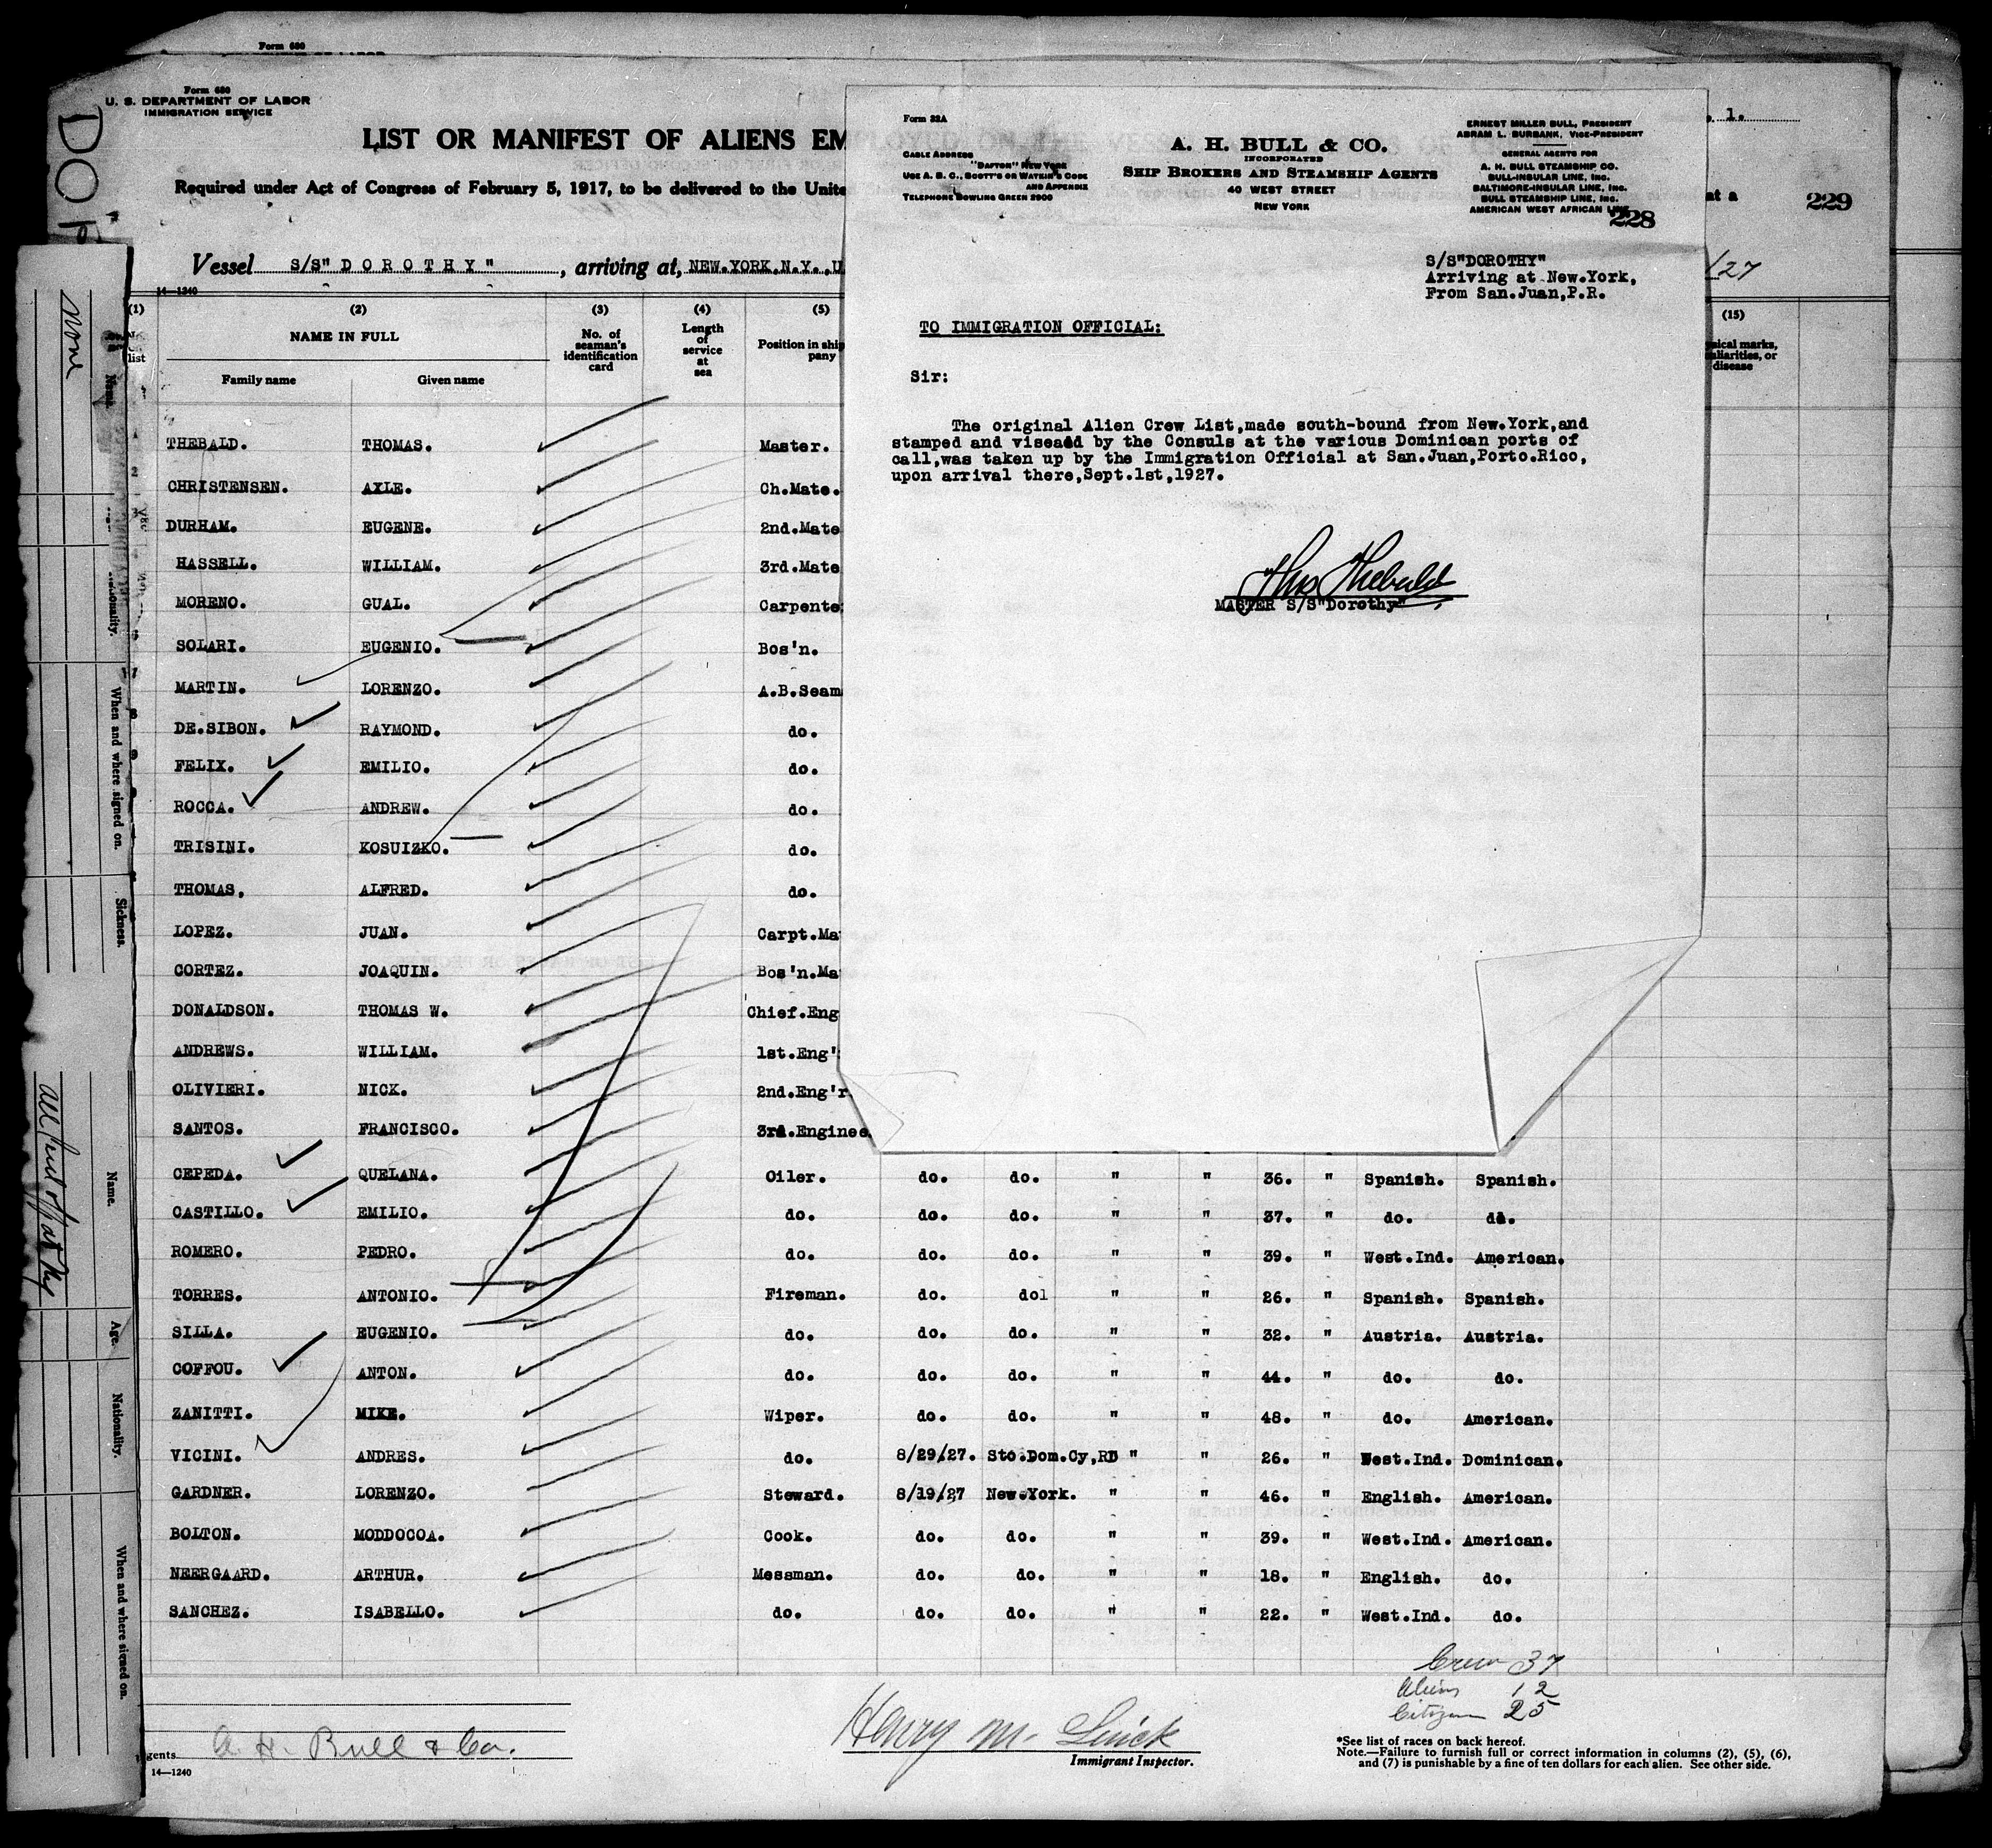 Form 680
Form 680
U. S. DEPARTMENT OF LABOR
IMMIGRATION SERVICE
LIST OR MANIFEST OF ALIENS EM
Required under Act of Congress of February 5, 1917, to be delivered to the Unite
Vessel S/S"DOROTHY", arriving at, NEW.YORK.N.Y.,U
14—1240
1.
at a
229
/27
Form 22A
CABLE ADDRESS
"DAFTON" NEW YORK
USE A. B. C., SCOTT'S OR WATKIN'S CODE
AND APPENDIX
TELEPHONE BOWLING GREEN 2900
A. H. BULL & CO.
INCORPORATED
SHIP BROKERS AND STEAMSHIP AGENTS
40 WEST STREET
NEW YORK
ERNEST MILLER BULL, PRESIDENT
ABRAM L. BURBANK, VICE-PRESIDENT
GENERAL AGENTS FOR
A. H. BULL STEAMSHIP CO.
BULL-INSULAR LINE, INC.
BALTIMORE-INSULAR LINE, INC.
BULL STEAMSHIP LINE, INC.
AMERICAN WEST AFRICAN LINE
228
S/S"DOROTHY"
Arriving at New.York,
From San.Juan,P.R.
TO IMMIGRATION OFFICIAL:
Sir:
The original Alien Crew List,made south-bound from New.York,and
stamped and viseadd by the Consuls at the various Dominican ports of
call,was taken up by the Immigration Official at San.Juan,Porto.Rico,
upon arrival there,Sept.1st,1927.
Thos Thebald
MASTER S/S"Dorothy"
(1) (2) (3) (4) (5) (15)
list
NAME IN FULL
Family name Given name
No. of seaman's identification card
Length of service at sea
Position in ship
pany
disease
THEBALD. THOMAS. Master.
CHRISTENSEN. AXLE. Ch.Mate.
DURHAM. EUGENE. 2nd.Mate
HASSELL. WILLIAM. 3rd.Mate
MORENO. GUAL. Carpente
SOLARI. EUGENIO. Bos'n.
MARTIN. LORENZO. A.B.Seam
DE.SIBON. RAYMOND. do.
FELIX. EMILIO. do.
ROCCA. ANDREW. do.
TRISINI. KOSUIZKO. do.
THOMAS, ALFRED. do.
LOPEZ. JUAN. Carpt.Ma
CORTEZ. JOAQUIN. Bos'n.Ma
DONALDSON. THOMAS W. Chief.Eng
ANDREWS. WILLIAM. 1st.Eng'
OLIVIERI. NICK. 2nd.Eng'r
SANTOS. FRANCISCO. 3rd.Enginee
CEPEDA. QUELANA. Oiler. do. do. " " 36. " Spanish. Spanish.
CASTILLO. EMILIO. do. do. do. " " 37. " do. do.
ROMERO. PEDRO. do. do. do. " " 39. " West.Ind. American.
TORRES. ANTONIO. Fireman. do. dol " " 26. " Spanish. Spanish.
SILLA. EUGENIO. do. do. do. " " 32. " Austria. Austria.
COFFOU. ANTON. do. do. do. " " 44. " do. do.
ZANITTI. MIKE. Wiper. do. do. " " 48. " do. American.
VICINI. ANDRES. do. 8/29/27. Sto.Dom.Cy,RD " " 26. " West.Ind. Dominican.
GARDNER. LORENZO. Steward. 8/19/27 New.York. " " 46. " English. American.
BOLTON. MODDOCOA. Cook. do. do. " " 39. " West.Ind. American.
NEERGAARD. ARTHUR. Messman. do. do. " " 18. " English. do.
SANCHEZ. ISABELLO. do. do. do. " " 22. " West.Ind. do.
Crew 37
Aliens 12
Citizen 25
A. H. Bull & Co.
gents
14—1240
Immigrant Inspector.
*See list of races on back hereof.
Note.—Failure to furnish full or correct information in columns (2), (5), (6),
and (7) is punishable by a fine of ten dollars for each alien. See other side.
None
Name.
When and where signed on.
Sickness.
Name.
Age.
Nationality.
When and where signed on.